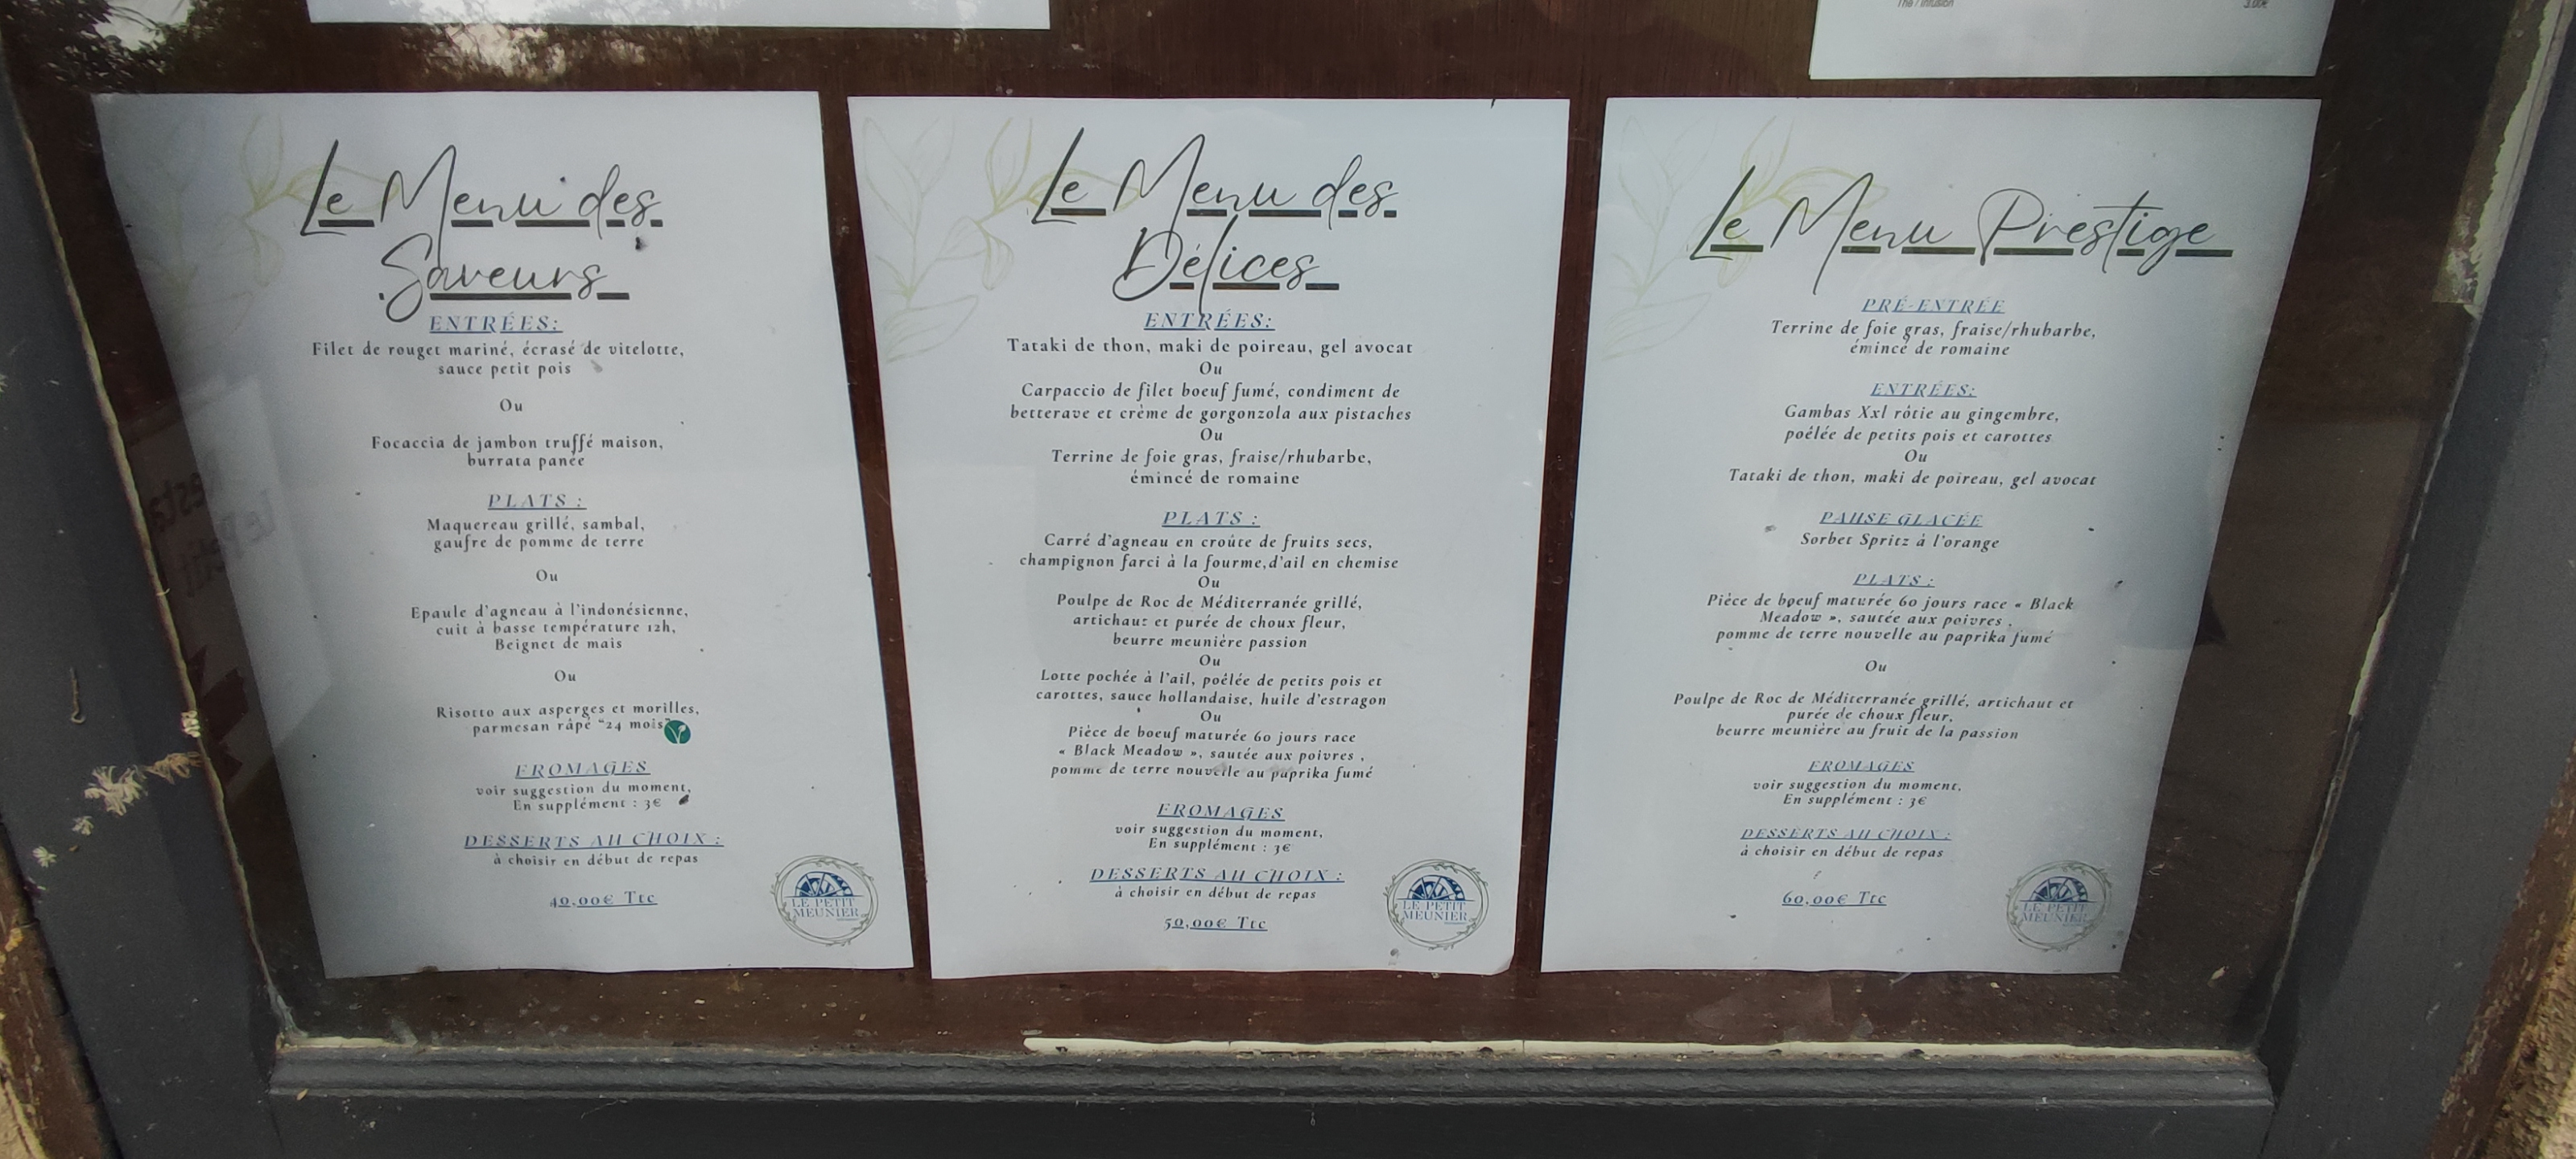 Thé / Infusion 3.00€
Le Menu des
Saveurs
ENTRÉES:
Filet de rouget mariné, écrasé de vitelotte,
sauce petit pois
Ou
Focaccia de jambon truffé maison,
burrata panée
PLATS :
Maquereau grillé, sambal,
gaufre de pomme de terre
Ou
Epaule d'agneau à l'indonésienne,
cuit à basse température 12h,
Beignet de mais
Ou
Risotto aux asperges et morilles,
parmesan râpé "24 mois"
FROMAGES
voir suggestion du moment,
En supplément : 3€
DESSERTS AU CHOIX :
à choisir en début de repas
40,00€ Ttc
LE PETIT
MEUNIER
Le Menu des
Délices
ENTRÉES:
Tataki de thon, maki de poireau, gel avocat
Ou
Carpaccio de filet boeuf fumé, condiment de
betterave et crème de gorgonzola aux pistaches
Ou
Terrine de foie gras, fraise/rhubarbe,
émincé de romaine
PLATS :
Carré d'agneau en croûte de fruits secs,
champignon farci à la fourme,d'ail en chemise
Ou
Poulpe de Roc de Méditerranée grillé,
artichaut et purée de choux fleur,
beurre meunière passion
Ou
Lotte pochée à l'ail, poêlée de petits pois et
carottes, sauce hollandaise, huile d'estragon
Ou
Pièce de boeuf maturée 60 jours race
« Black Meadow », sautée aux poivres ,
pomme de terre nouvelle au paprika fumé
FROMAGES
voir suggestion du moment,
En supplément : 3€
DESSERTS AU CHOIX :
à choisir en début de repas
50,00€ Ttc
LE PETIT
MEUNIER
Le Menu Prestige
PRÉ-ENTRÉE
Terrine de foie gras, fraise/rhubarbe,
émincé de romaine
ENTRÉES:
Gambas Xxl rôtie au gingembre,
poêlée de petits pois et carottes
Ou
Tataki de thon, maki de poireau, gel avocat
PAUSE GLACÉE
Sorbet Spritz à l'orange
PLATS :
Pièce de bœuf maturée 60 jours race « Black
Meadow », sautée aux poivres ,
pomme de terre nouvelle au paprika fumé
Ou
Poulpe de Roc de Méditerranée grillé, artichaut et
purée de choux fleur,
beurre meunière au fruit de la passion
FROMAGES
voir suggestion du moment,
En supplément : 3€
DESSERTS AU CHOIX :
à choisir en début de repas
60,00€ Ttc
LE PETIT
MEUNIER